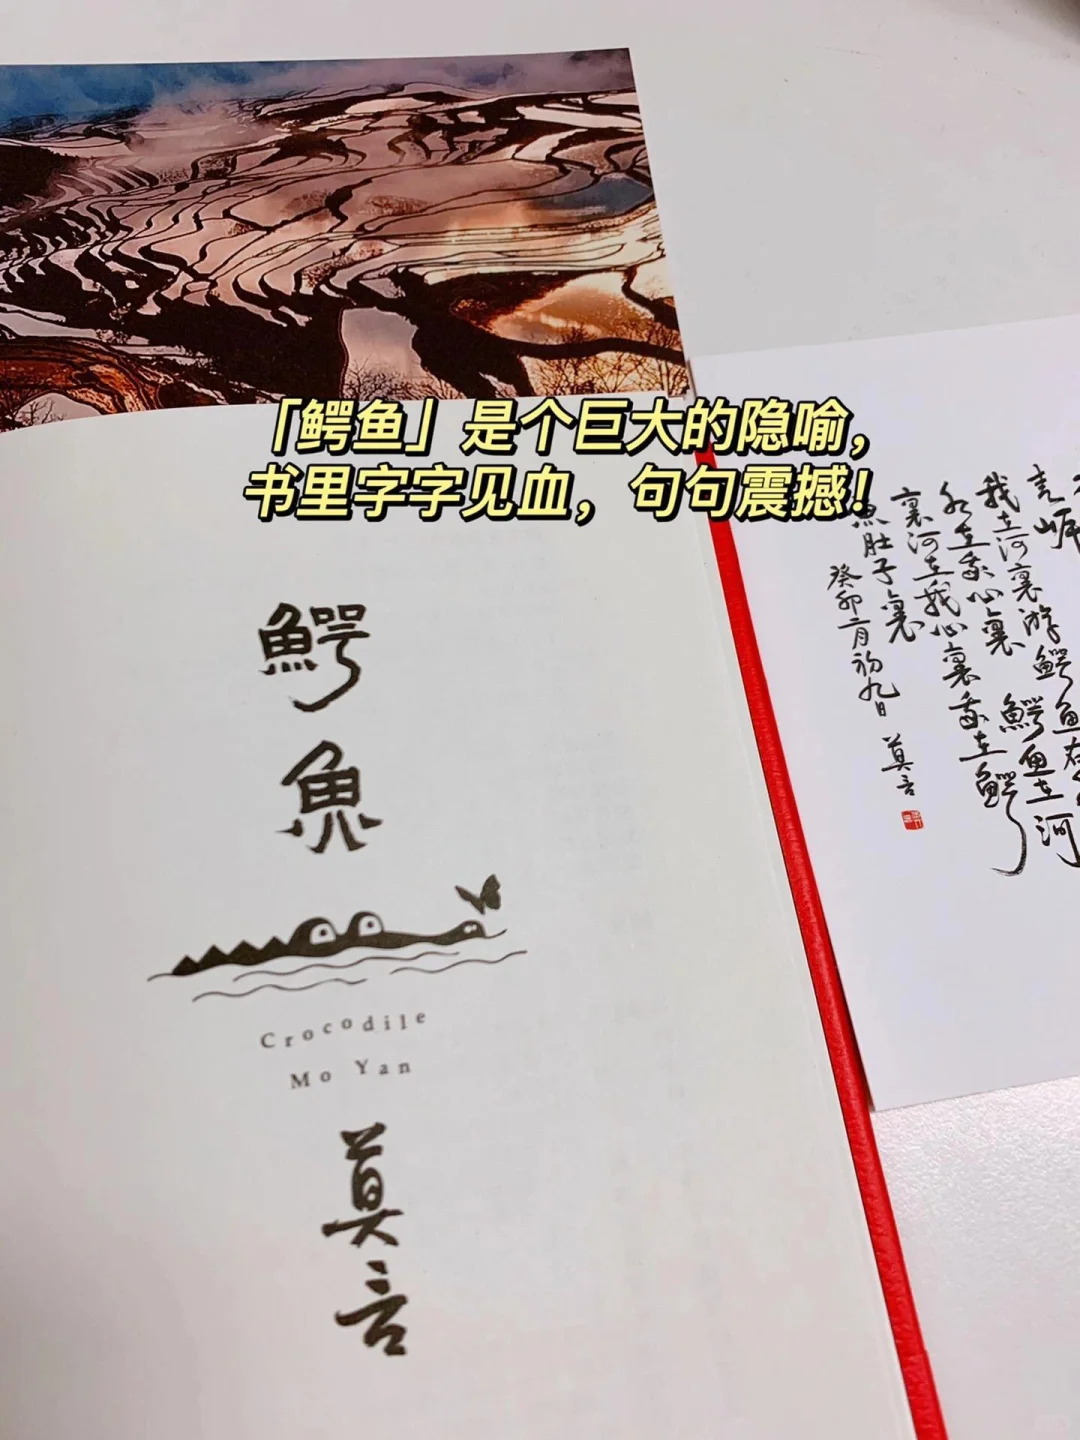 「鳄鱼」是个巨大的隐喻，
书里字字见血，句句震撼！
鰐魚
Crocodile
Mo Yan
莫言
我在河裏游鰐鱼在
水在我心裏 鰐鱼在河
裏河在我心裏我在鰐
魚肚子裏
癸卯二月初九日 莫言